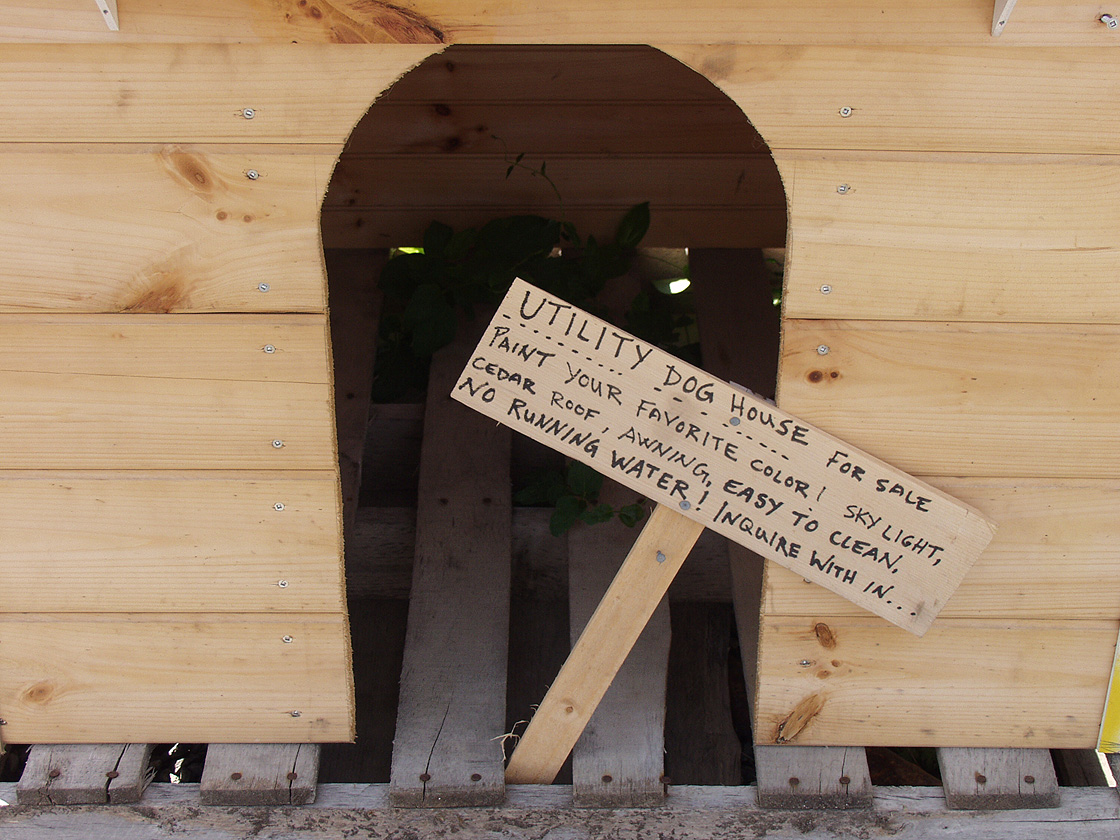 UTILITY DOG HOUSE FOR SALE
PAINT YOUR FAVORITE COLOR! SKYLIGHT,
CEDAR ROOF, AWNING, EASY TO CLEAN,
NO RUNNING WATER! INQUIRE WITH IN...